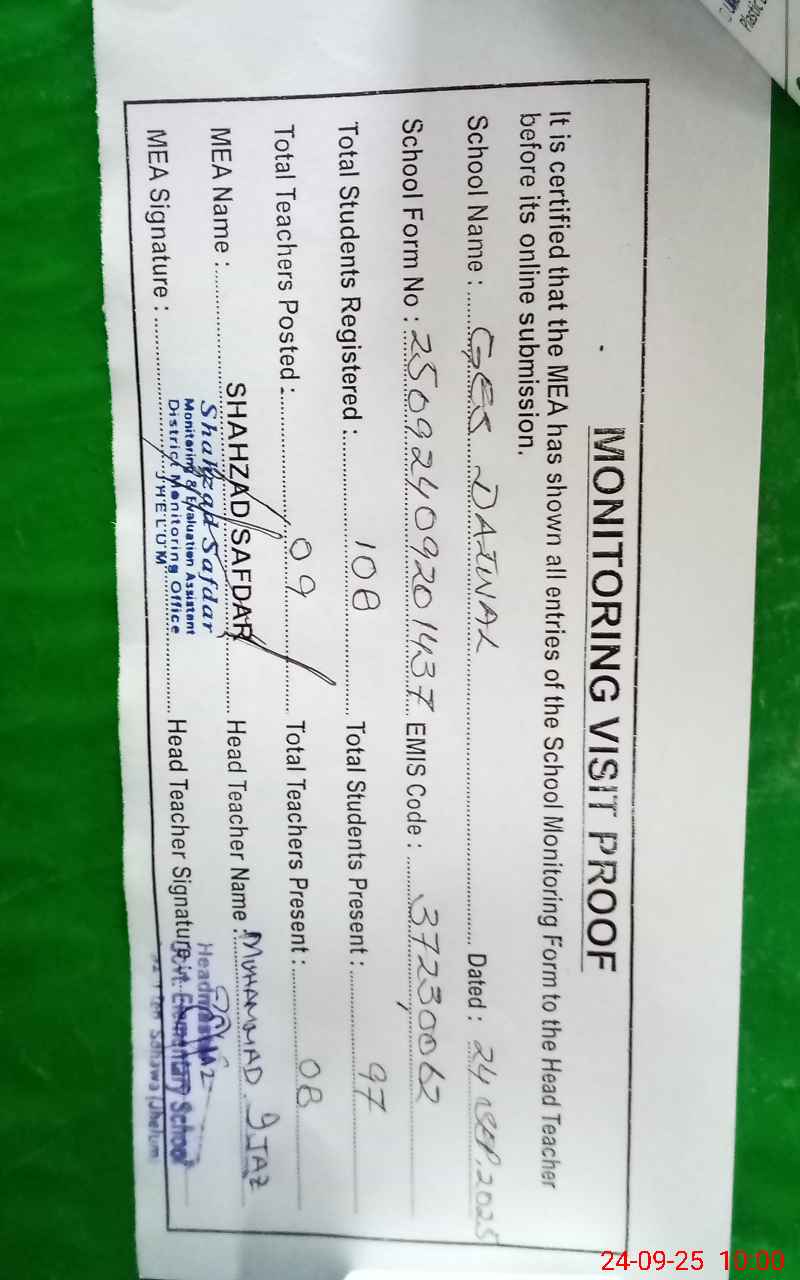 MONITORING VISIT PROOF
It is certified that the MEA has shown all entries of the School Monitoring Form to the Head Teacher
before its online submission.
School Name : GES DAIWAL Dated : 24 SEP, 2025
School Form No : 25092409201437 EMIS Code : 37230062
Total Students Registered : 108 Total Students Present : 97
Total Teachers Posted : 09 Total Teachers Present : 08
MEA Name : SHAHZAD SAFDAR Head Teacher Name : MUHAMMAD IJAZ
MEA Signature : Head Teacher Signature
Shahzad Safdar
Monitoring & Evaluation Assistant
District Monitoring Office
JHELUM
Headmaster
Govt. Elementary School
Sohawa (Jhelum)
Plastic
24-09-25 10:00